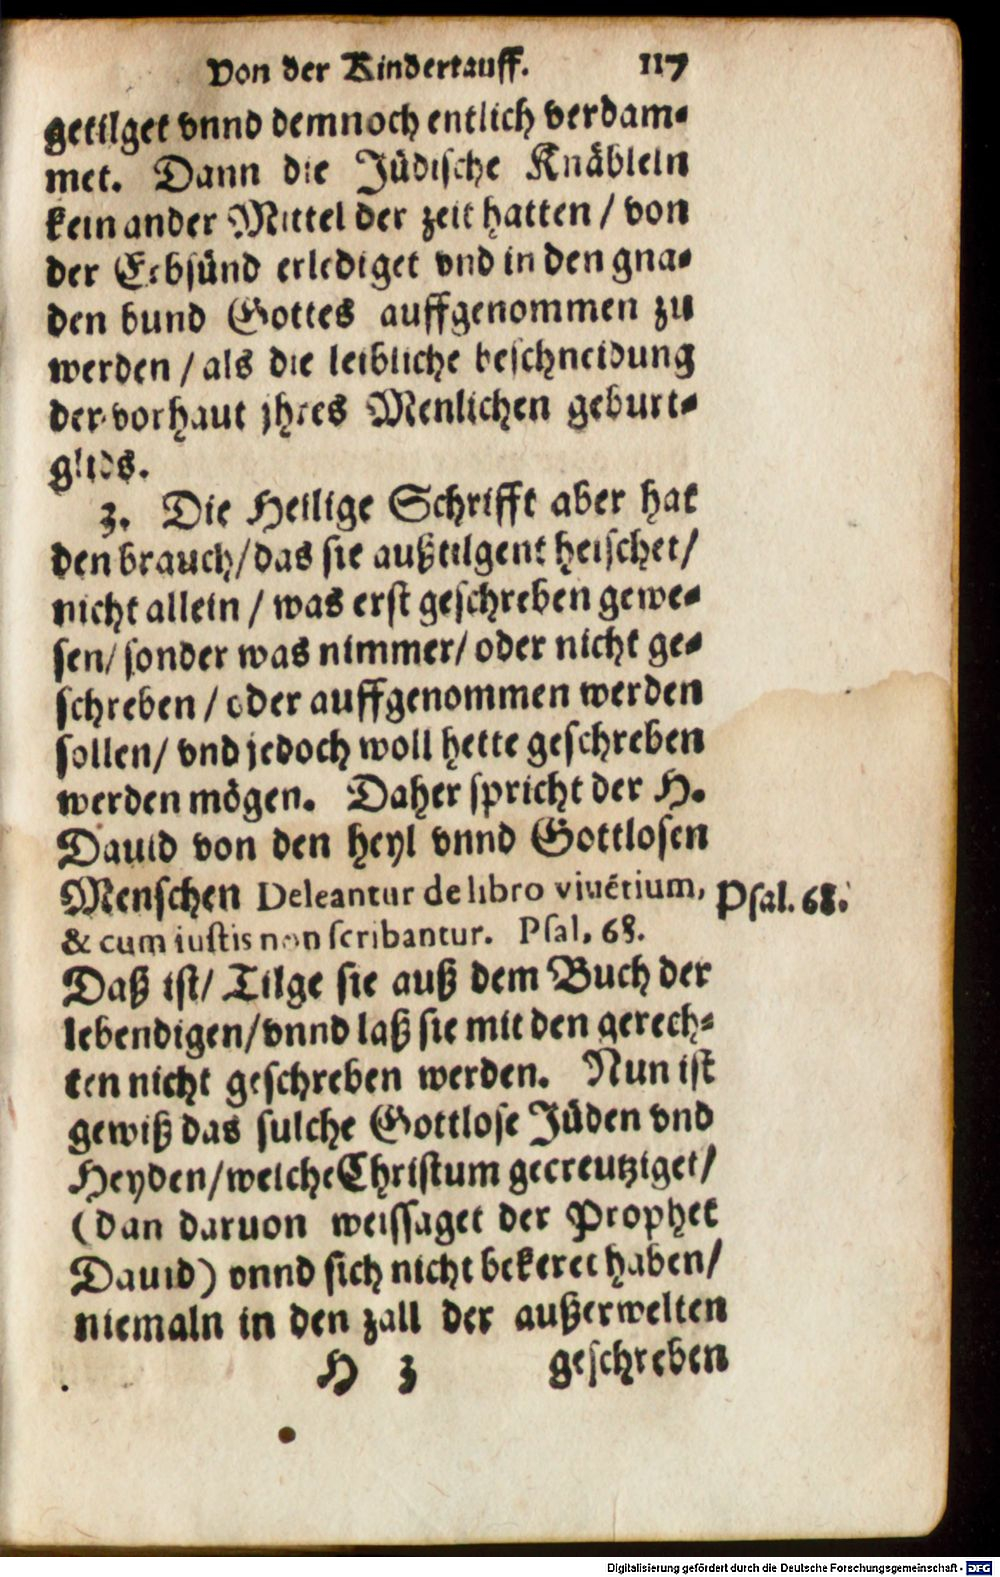 Von der Kindertauff. 117
getilget vnnd demnoch entlich verdam-
met. Dann die Jüdische Knäblein
kein ander Mittel der zeit hatten / von
der Erbsünd erlediget vnd in den gna-
den bund Gottes auffgenommen zu
werden / als die leibliche beschneidung
der vorhaut jhres Menlichen geburt-
glids.
3. Die Heilige Schrifft aber hat
den brauch / das sie außtilgent heischet /
nicht allein / was erst geschreben gewe-
sen / sonder was nimmer / oder nicht ge-
schreben / oder auffgenommen werden
sollen / vnd jedoch woll hette geschreben
werden mögen. Daher spricht der H.
Dauid von den heyl vnnd Gottlosen
Menschen Deleantur de libro viuētium, Psal. 68.
& cum iustis non scribantur. Psal. 68.
Daß ist / Tilge sie auß dem Buch der
lebendigen / vnnd laß sie mit den gerech-
ten nicht geschreben werden. Nun ist
gewiß das sulche Gottlose Jüden vnd
Heyden / welche Christum gecreutziget /
(dan daruon weissaget der Prophet
Dauid) vnnd sich nicht bekeret haben /
niemaln in den zall der außerwelten
H 3 geschreben
Digitalisierung gefördert durch die Deutsche Forschungsgemeinschaft - DFG